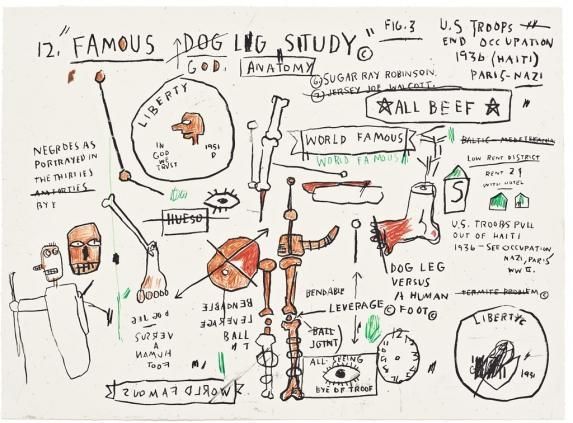 12. "FAMOUS DOG LEG STUDY" ©
GOD. ANATOMY
FIG. 3
U.S TROOPS
END OCCUPATION
1936 (HAITI)
PARIS-NAZI
SUGAR RAY ROBINSON.
JERSEY JOE WALCOTT.
ALL BEEF
LIBERTY
IN
GOD
WE
TRUST
1951
D
WORLD FAMOUS
WORLD FAMOUS
LOW RENT DISTRICT
RENT 2
WITH HOTEL
S
NEGROES AS
PORTRAYED IN
THE THIRTIES
HUESO
U.S. TROOPS PULL
OUT OF HAITI
1936 - SEE OCCUPATION
NAZI, PARIS
WW II.
DOG LEG
VERSUS
A HUMAN
© FOOT ©
TERMITE PROBLEM ©
BENDABLE
LEVERAGE
BALL
JOINT
ALL-SEEING
EYE OF TROOF
BENDABLE
LEVERAGE
BALL
DOG LEG
VERSUS
A
HUMAN
FOOT
WORLD FAMOUS
LIBERTY
1951